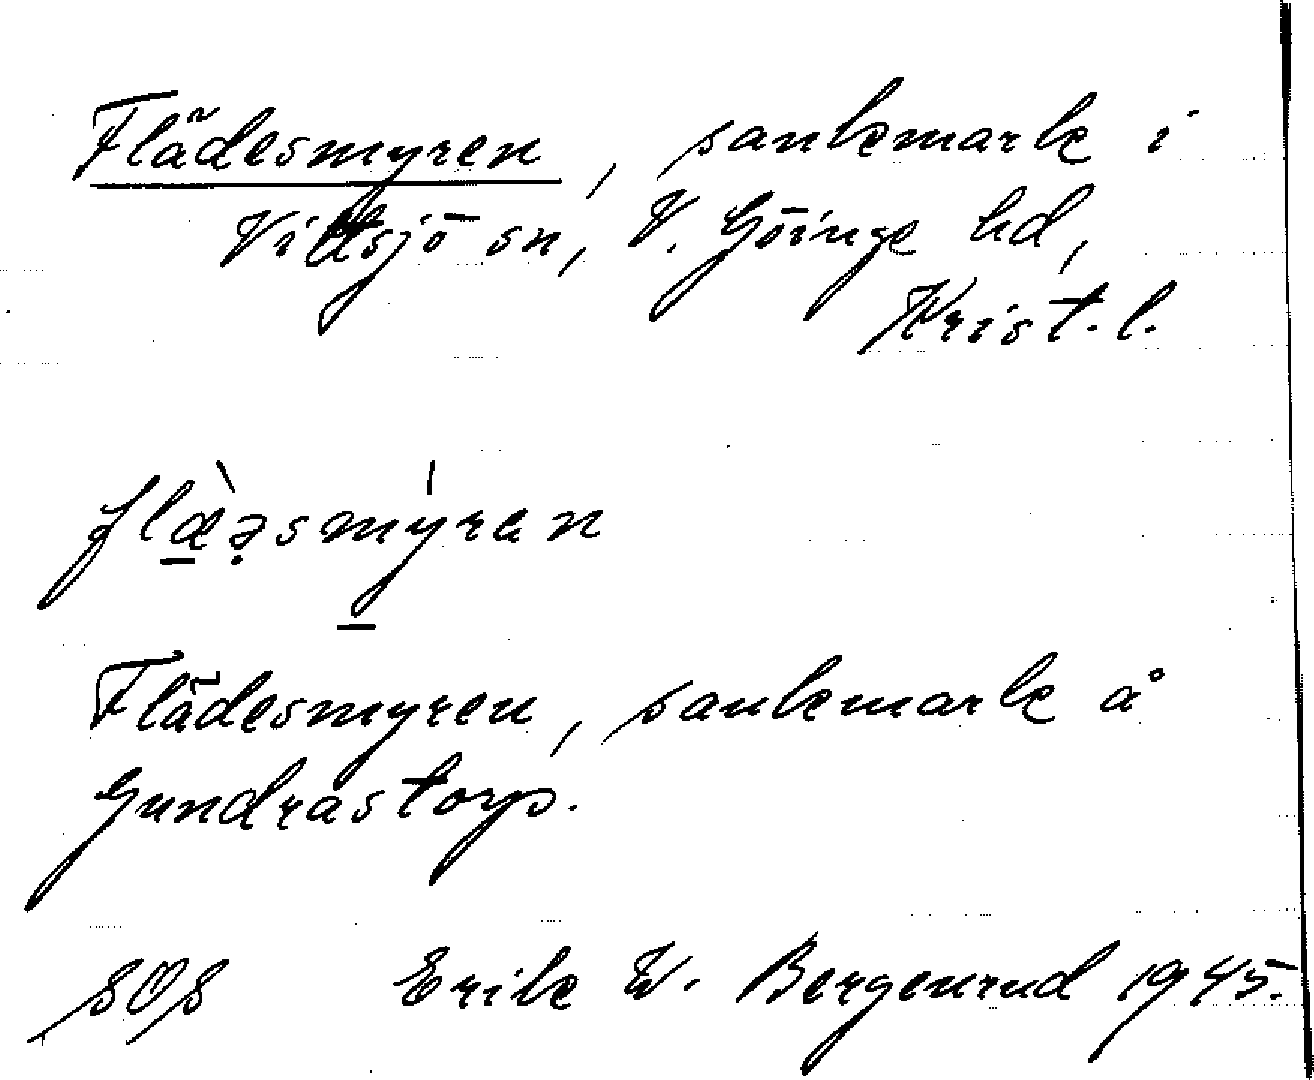 Flädesmyren, sankmark i
Vittsjö sn, V. Göinge hd,
Krist. l.
flæ̀əsmýren
Flädesmyren, sankmark å
Gundrastorp.
SOS Erik W. Bergenrud 1945.